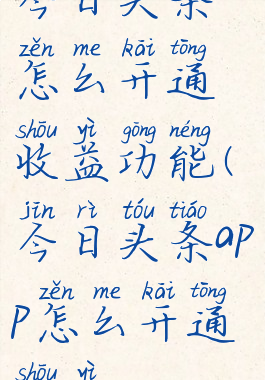 今日头条
zěn me kāi tōng
怎么开通
shōu yì gōng néng
收益功能(
jīn rì tóu tiáo
今日头条ap
zěn me kāi tōng
p怎么开通
shōu yì